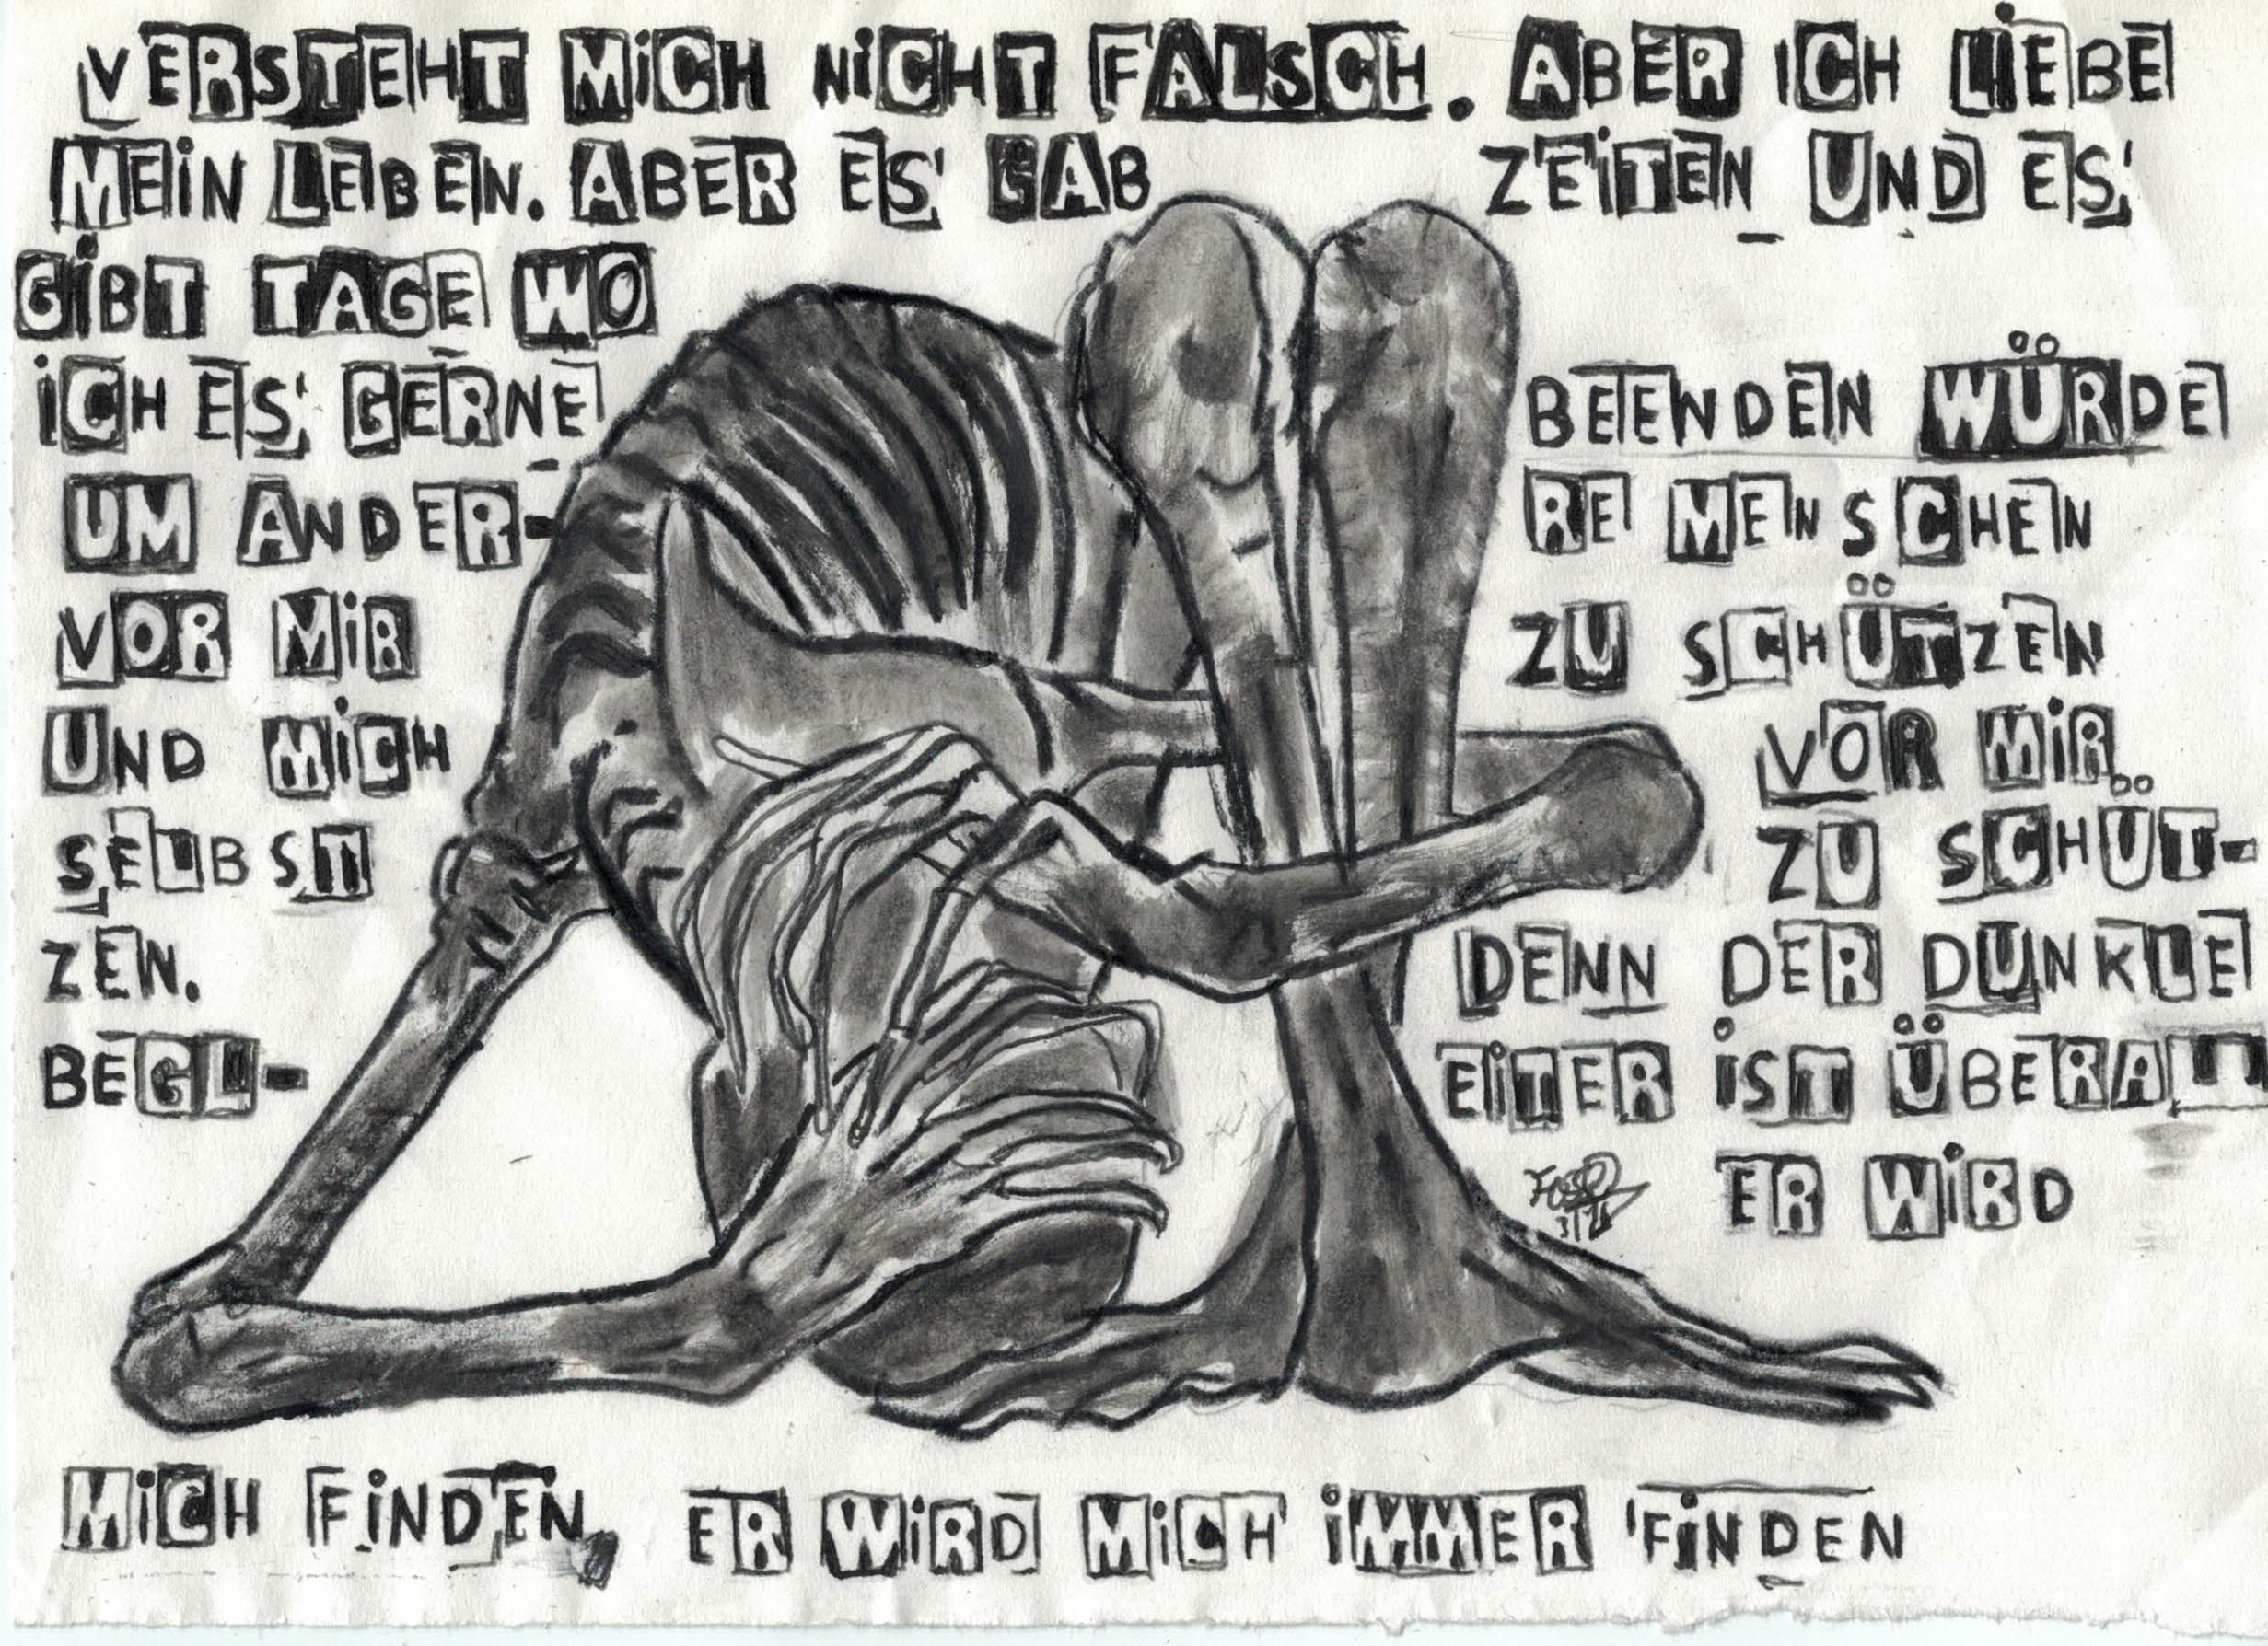 VERSTEHT MICH NICHT FALSCH. ABER ICH LIEBE
MEIN LEBEN. ABER ES GAB ZEITEN UND ES
GIBT TAGE WO
ICH ES GERNE BEENDEN WÜRDE
UM ANDER- RE MENSCHEN
VOR MIR ZU SCHÜTZEN
UND MICH VOR MIR
SELBST ZU SCHÜT-
ZEN. DENN DER DUNKLE
BEGL- EITER IST ÜBERALL
ER WIRD
MICH FINDEN, ER WIRD MICH IMMER FINDEN